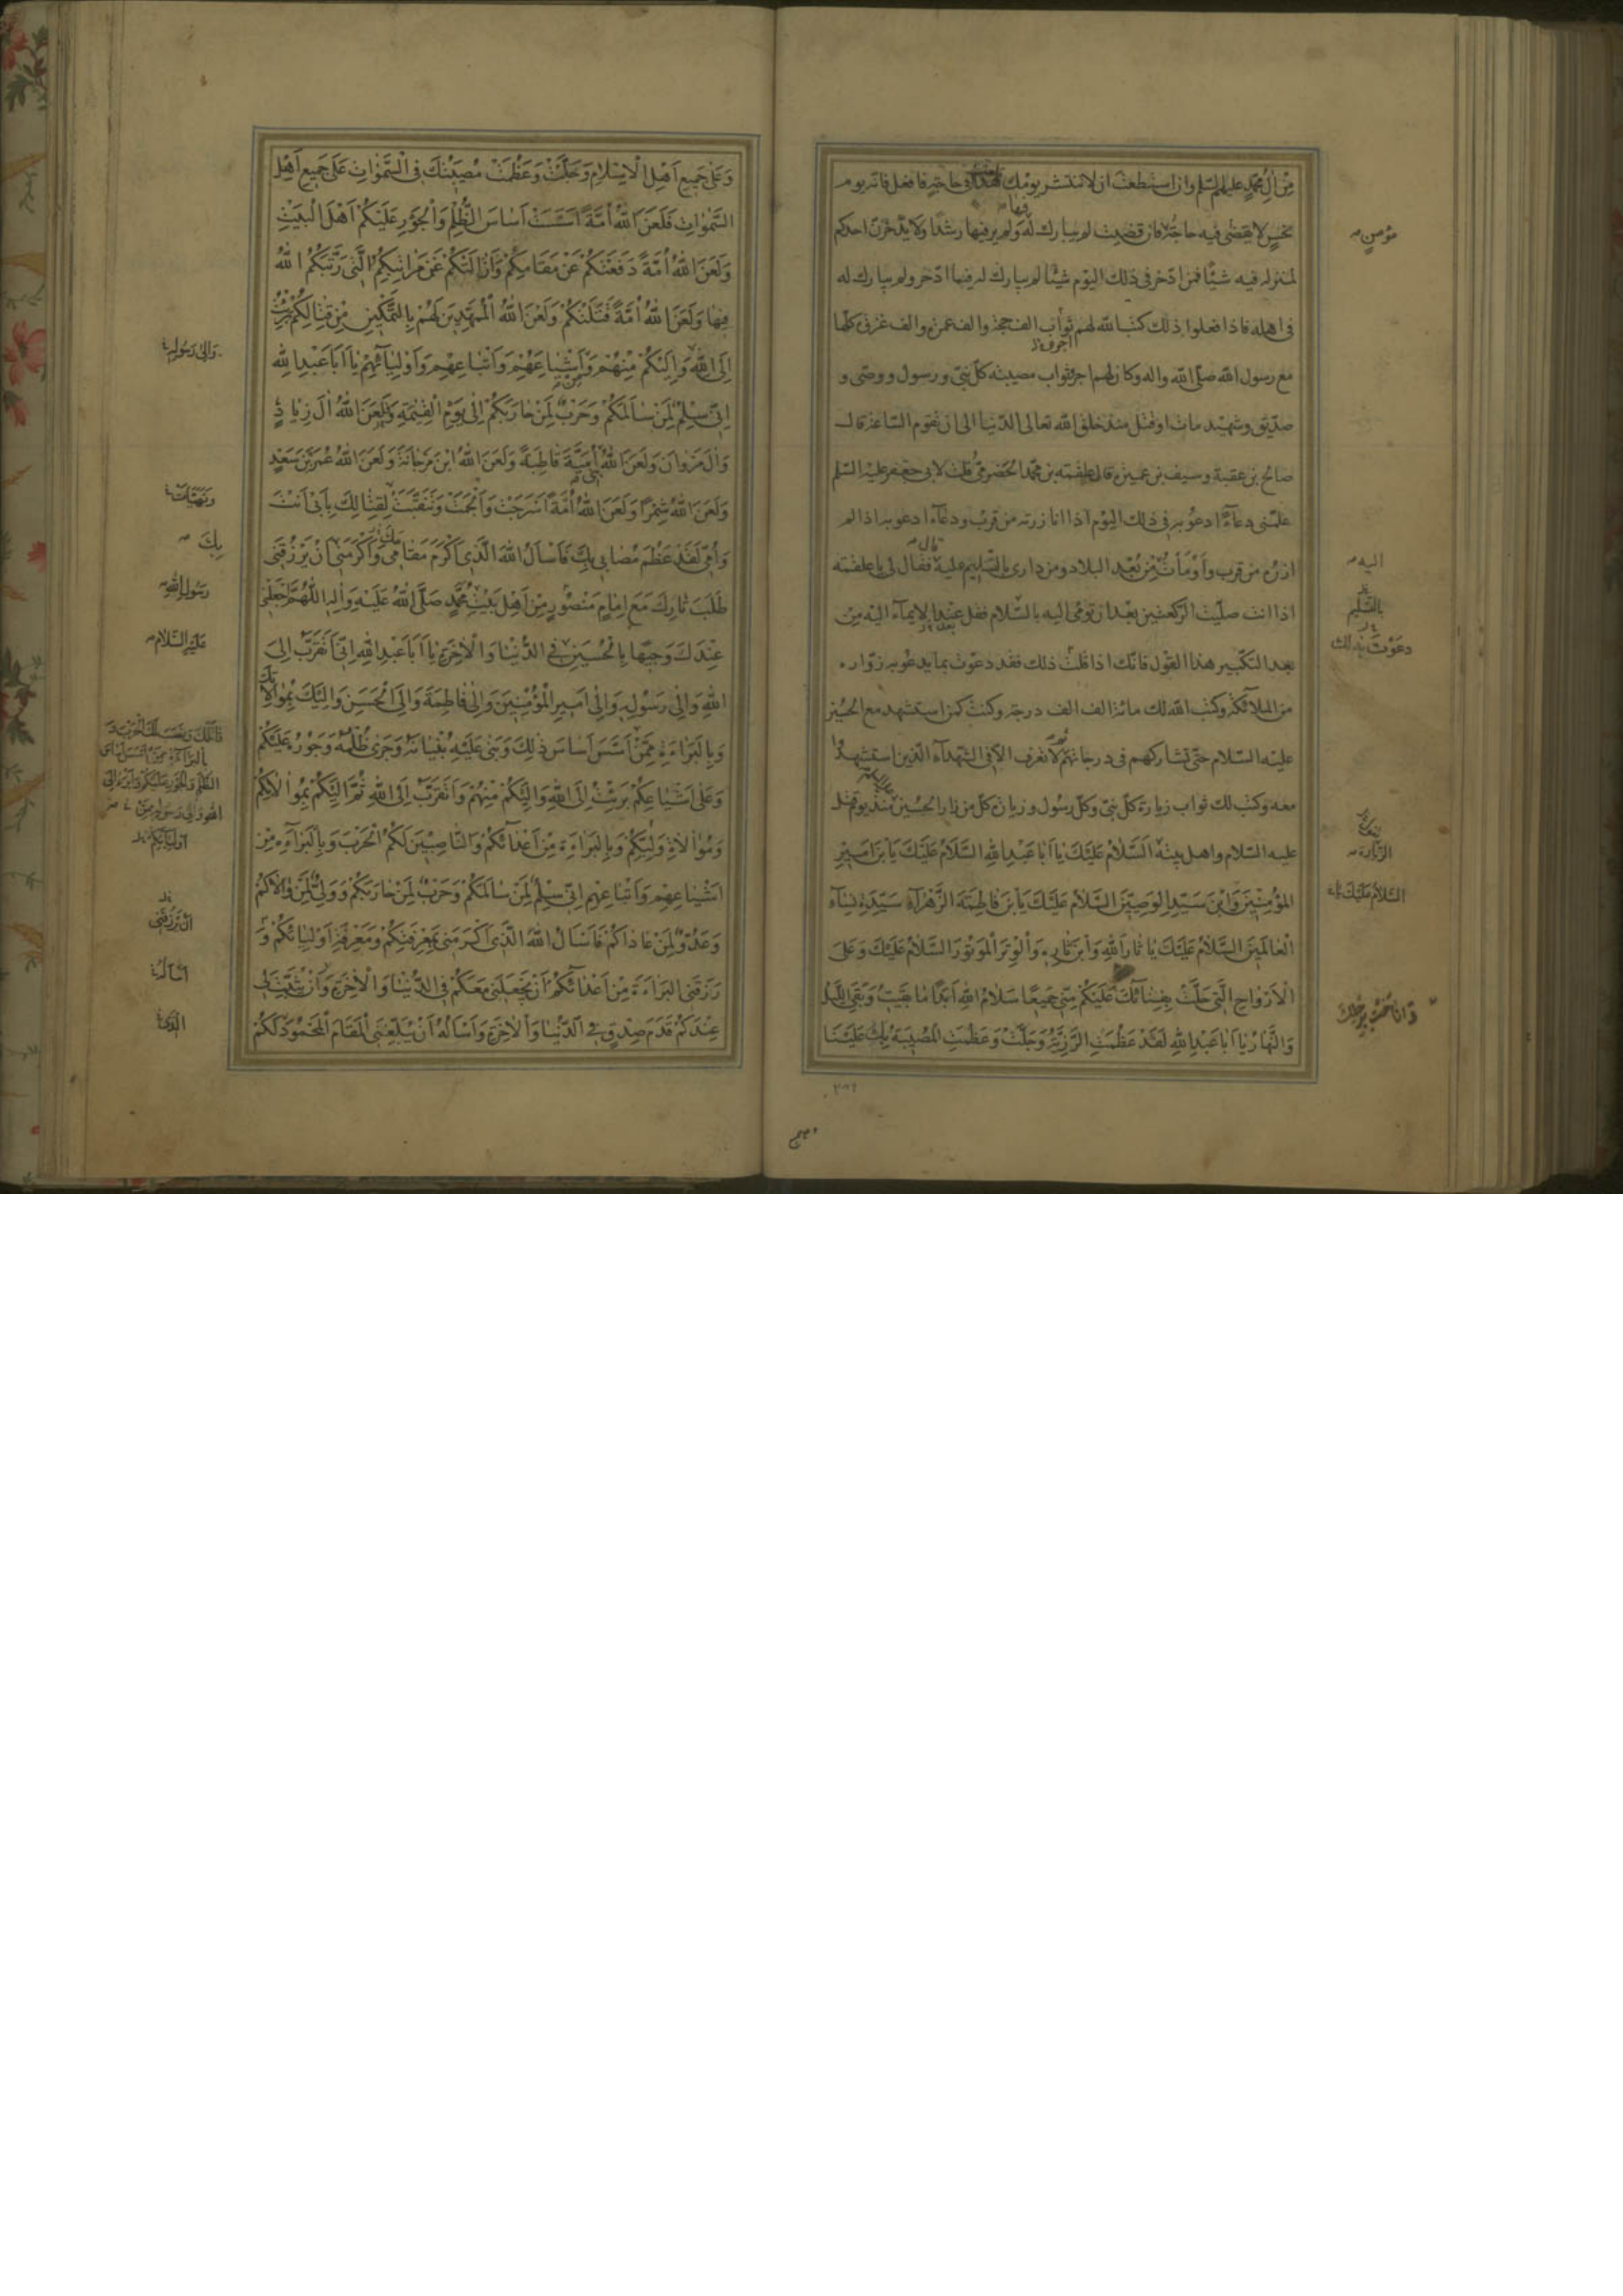 مِنْ اٰلِ مُحَمَّدٍ عليهم السّلم وان استطعت ان لا تنتشر يومك فى حاجة فافعل فانه يوم
نحس لا يقضى فيه حاجة فان قضيت لم يبارك له ولم ير فيها رشدًا ولا يدّخرنّ احدكم
لمنزله فيه شيئًا فمن ادّخر فى ذلك اليوم شيئًا لم يبارك له فيما ادّخر ولم يبارك له
فى اهله فاذا فعلوا ذلك كتب الله لهم ثواب الف حجة والف عمرة والف غزوة كلّها
مع رسول الله صلّى الله واله وكان لهم اجر ثواب مصيبة كلّ نبىّ ورسول ووصّى و
صدّيق وشهيد مات او قتل منذ خلق الله تعالى الدّنيا الى ان تقوم السّاعة قال
صالح بن عقبة وسيف بن عميرة قال علقمة بن محمّد الحضرمىّ قلت لابى جعفر عليه السّلم
علّمنى دعاءً ادعو به فى ذلك اليوم اذا انا زرته من قرب ودعاء ادعو به اذا لم
ازره من قرب واومأت من بُعد البلاد ومن دارى بالتّسليم عليه فقال لى يا علقمة
اذا انت صلّيت الركعتين بعد ان تومى اليه بالسّلام فقل عند الايماء اليه من
بعد التكبير هذا القول فانّك اذا قلت ذلك فقد دعوت بما يدعو به زوّاره
من الملائكة وكتب الله لك مائة الف الف درجة وكنت كمن استشهد مع الحسين
عليه السّلام حتّى تشاركهم فى درجاتهم لا تعرف الّا فى الشهداء الّذين استشهدوا
معه وكتب لك ثواب زيارة كلّ نبىّ وكلّ رسول وزيارة كلّ من زار الحسين منذ يوم قتل
عليه السّلام واهل بيته اَلسَّلامُ عَلَيْكَ يا اَبا عَبْدِ اللهِ السَّلامُ عَلَيْكَ يَا بْنَ اَميرِ
المُؤْمِنينَ وَابْنَ سَيِّدِ الوَصِيّينَ السَّلامُ عَلَيْكَ يَا بْنَ فاطِمَةَ الزَّهْراءِ سَيِّدَةِ نِساءِ
الْعالَمينَ السَّلامُ عَلَيْكَ يا ثارَ اللهِ وَابْنَ ثارِهِ وَالْوِتْرَ الْمَوْتُورَ السَّلامُ عَلَيْكَ وَعَلَى
الْاَرْواحِ الَّتى حَلَّتْ بِفِنائِكَ عَلَيْكُمْ مِنّى جَميعًا سَلامُ اللهِ اَبَدًا ما بَقيتُ وَبَقِىَ اللَّيْلُ
وَالنَّهارُ يا اَبا عَبْدِ اللهِ لَقَدْ عَظُمَتِ الرَّزِيَّةُ وَجَلَّتْ وَعَظُمَتِ المُصيبَةُ بِكَ عَلَيْنا
مؤمن
اليه
بالتسليم
دعوت بذلك
الزيارة
السّلامُ عَلَيْكَ
وَعَلى جَميعِ اَهْلِ الْاِسْلامِ وَجَلَّتْ وَعَظُمَتْ مُصيبَتُكَ فِى السَّمٰواتِ عَلى جَميعِ اَهْلِ
السَّمٰواتِ فَلَعَنَ اللهُ اُمَّةً اَسَّسَتْ اَساسَ الظُّلْمِ وَالْجَوْرِ عَلَيْكُمْ اَهْلَ الْبَيْتِ
وَلَعَنَ اللهُ اُمَّةً دَفَعَتْكُمْ عَنْ مَقامِكُمْ وَاَزالَتْكُمْ عَنْ مَراتِبِكُمُ الَّتى رَتَّبَكُمُ اللهُ
فيها وَلَعَنَ اللهُ اُمَّةً قَتَلَتْكُمْ وَلَعَنَ اللهُ الْمُمَهِّدينَ لَهُمْ بِالتَّمْكينِ مِنْ قِتالِكُمْ بَرِئْتُ
اِلَى اللهِ وَاِلَيْكُمْ مِنْهُمْ وَاَشْياعِهِمْ وَاَتْباعِهِمْ وَاَوْلِيائِهِمْ يا اَبا عَبْدِ اللهِ
اِنّى سِلْمٌ لِمَنْ سالَمَكُمْ وَحَرْبٌ لِمَنْ حارَبَكُمْ اِلى يَوْمِ الْقِيٰمَةِ وَلَعَنَ اللهُ اٰلَ زِيادٍ
وَاٰلَ مَرْوانَ وَلَعَنَ اللهُ بَنى اُمَيَّةَ قاطِبَةً وَلَعَنَ اللهُ ابْنَ مَرْجانَةَ وَلَعَنَ اللهُ عُمَرَ بْنَ سَعْدٍ
وَلَعَنَ اللهُ شِمْرًا وَلَعَنَ اللهُ اُمَّةً اَسْرَجَتْ وَاَلْجَمَتْ وَتَنَقَّبَتْ لِقِتالِكَ بِاَبى اَنْتَ
وَاُمّى لَقَدْ عَظُمَ مُصابى بِكَ فَاَسْاَلُ اللهَ الَّذى اَكْرَمَ مَقامَكَ وَاَكْرَمَنى اَنْ يَرْزُقَنى
طَلَبَ ثارِكَ مَعَ اِمامٍ مَنْصُورٍ مِنْ اَهْلِ بَيْتِ مُحَمَّدٍ صَلَّى اللهُ عَلَيْهِ وَاٰلِهِ اَللّٰهُمَّ اجْعَلْنى
عِنْدَكَ وَجيهًا بِالْحُسَيْنِ فِى الدُّنْيا وَالْاٰخِرَةِ يا اَبا عَبْدِ اللهِ اِنّى اَتَقَرَّبُ اِلَى
اللهِ وَاِلى رَسُولِهِ وَاِلى اَميرِ الْمُؤْمِنينَ وَاِلى فاطِمَةَ وَاِلَى الْحَسَنِ وَاِلَيْكَ بِمُوالاتِكَ
وَبِالْبَراءَةِ مِمَّنْ اَسَّسَ اَساسَ ذٰلِكَ وَبَنى عَلَيْهِ بُنْيانَهُ وَجَرى ظُلْمُهُ وَجَوْرُهُ عَلَيْكُمْ
وَعَلى اَشْياعِكُمْ بَرِئْتُ اِلَى اللهِ وَاِلَيْكُمْ مِنْهُمْ وَاَتَقَرَّبُ اِلَى اللهِ ثُمَّ اِلَيْكُمْ بِمُوالاتِكُمْ
وَمُوالاةِ وَلِيِّكُمْ وَبِالْبَراءَةِ مِنْ اَعْدائِكُمْ وَالنّاصِبينَ لَكُمُ الْحَرْبَ وَبِالْبَراءَةِ مِنْ
اَشْياعِهِمْ وَاَتْباعِهِمْ اِنّى سِلْمٌ لِمَنْ سالَمَكُمْ وَحَرْبٌ لِمَنْ حارَبَكُمْ وَوَلِىٌّ لِمَنْ والاكُمْ
وَعَدُوٌّ لِمَنْ عاداكُمْ فَاَسْاَلُ اللهَ الَّذى اَكْرَمَنى بِمَعْرِفَتِكُمْ وَمَعْرِفَةِ اَوْلِيائِكُمْ وَ
رَزَقَنِى البَراءَةَ مِنْ اَعْدائِكُمْ اَنْ يَجْعَلَنى مَعَكُمْ فِى الدُّنْيا وَالْاٰخِرَةِ وَاَنْ يُثَبِّتَ لى
عِنْدَكُمْ قَدَمَ صِدْقٍ فِى الدُّنْيا وَالْاٰخِرَةِ وَاَسْاَلُهُ اَنْ يُبَلِّغَنِى الْمَقامَ الْمَحْمُودَ لَكُمْ
وَاِلى رَسُولِهِ
وَتَهَيَّأَتْ
بِكَ
رَسُولِ اللهِ
عَلَيْهِ السَّلام
اَوْلِيائِكُمْ
اَنْ يَرْزُقَنى
اَسْاَلُهُ
الَّذى